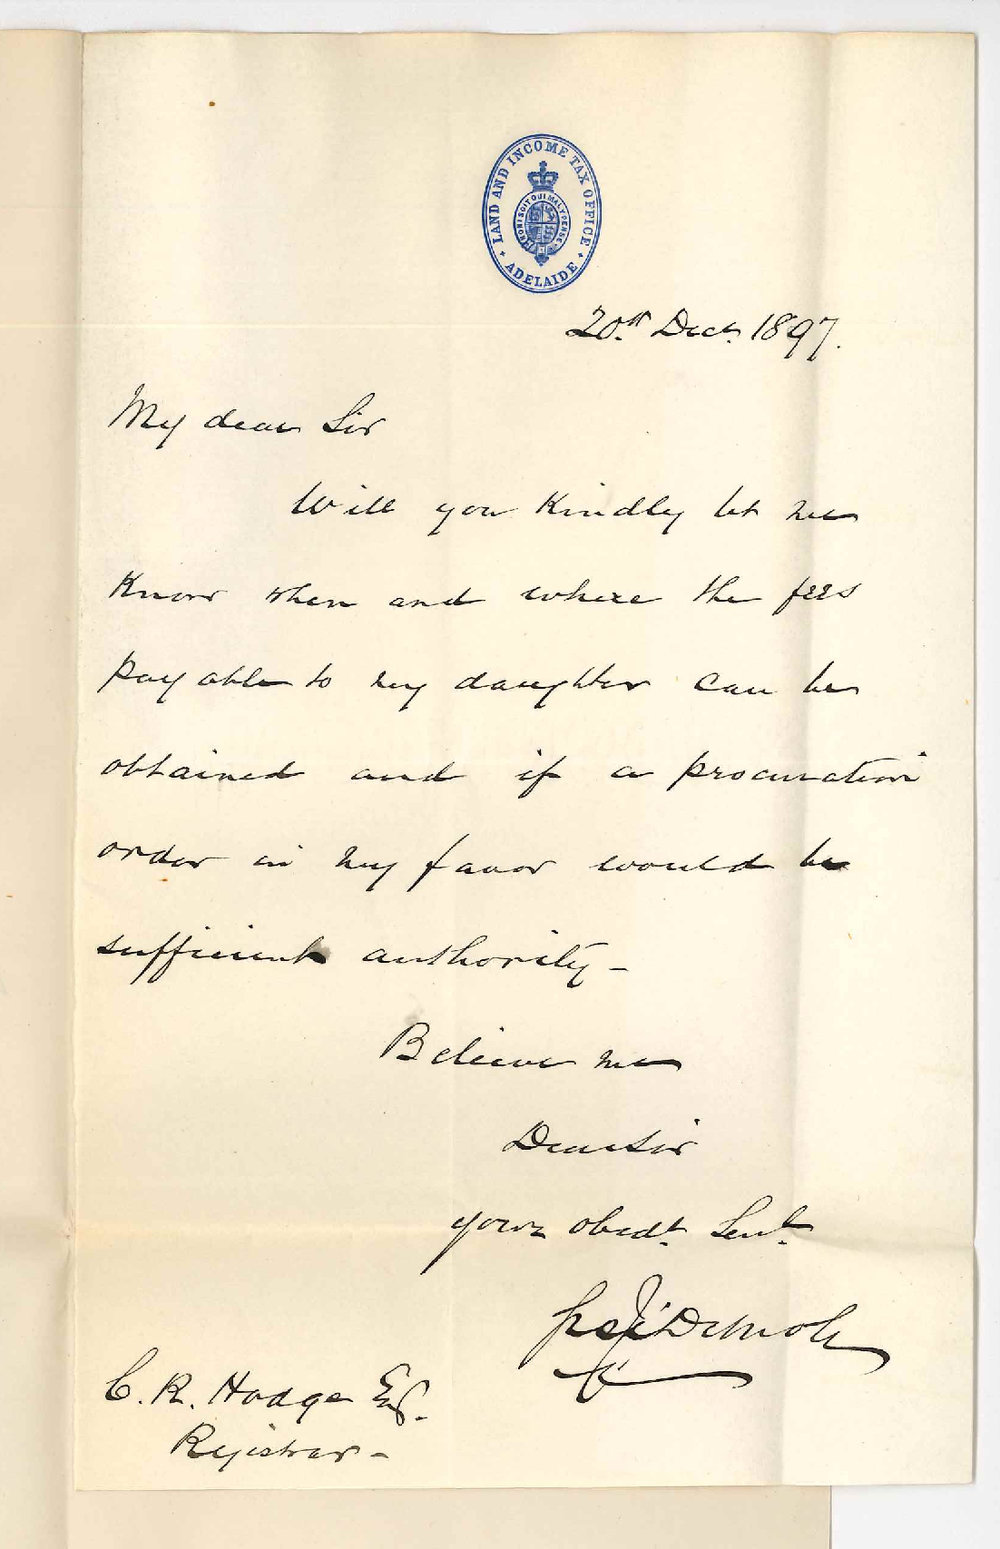 LAND AND INCOME TAX OFFICE
HONI SOIT QUI MAL Y PENSE
ADELAIDE
20th Decr. 1897.
My dear Sir
Will you kindly let me
know when and where the fees
payable to my daughter can be
obtained and if a procuration
order in my favor would be
sufficient authority -
Believe me
Dear Sir
yours obedt. Servt.
DeMole
C. R. Hodge Esq.
Registrar -